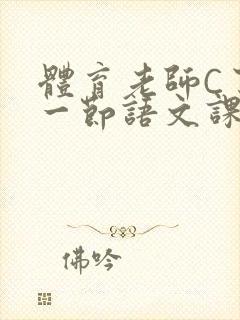 體育老師C
一節語文課
佛吟